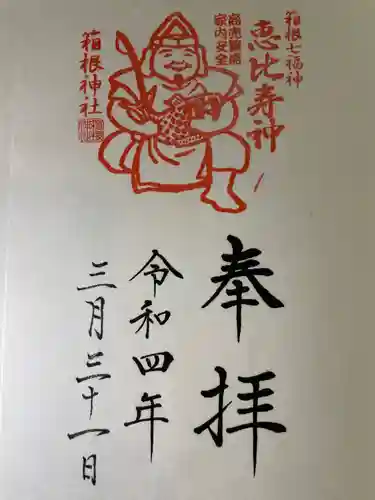 箱根七福神
恵比寿神
商売繁盛
家内安全
箱根神社
奉拝
令和四年
三月三十一日